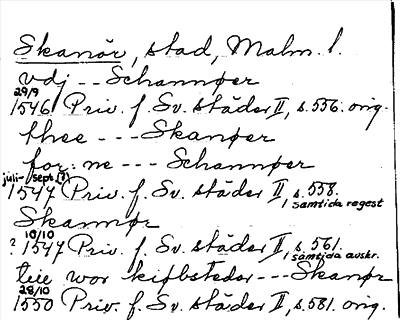 Skanör, stad, Malm. l.
vdj -- Schannøer
29/9
1546 Priv. f. Sv. städer II, s. 556. orig.
thee --- Skanøer
for: ne --- Schannøer
juli- sept. (?)
1547 Priv. f. Sv. städer II, s. 558.
samtida regest
Skannør
10/10
? 1547 Priv. f. Sv. städer II, s. 561.
samtida avskr.
teie wor kiøbsteder --- Skanør
28/10
1550 Priv. f. Sv. städer II, s. 581. orig.